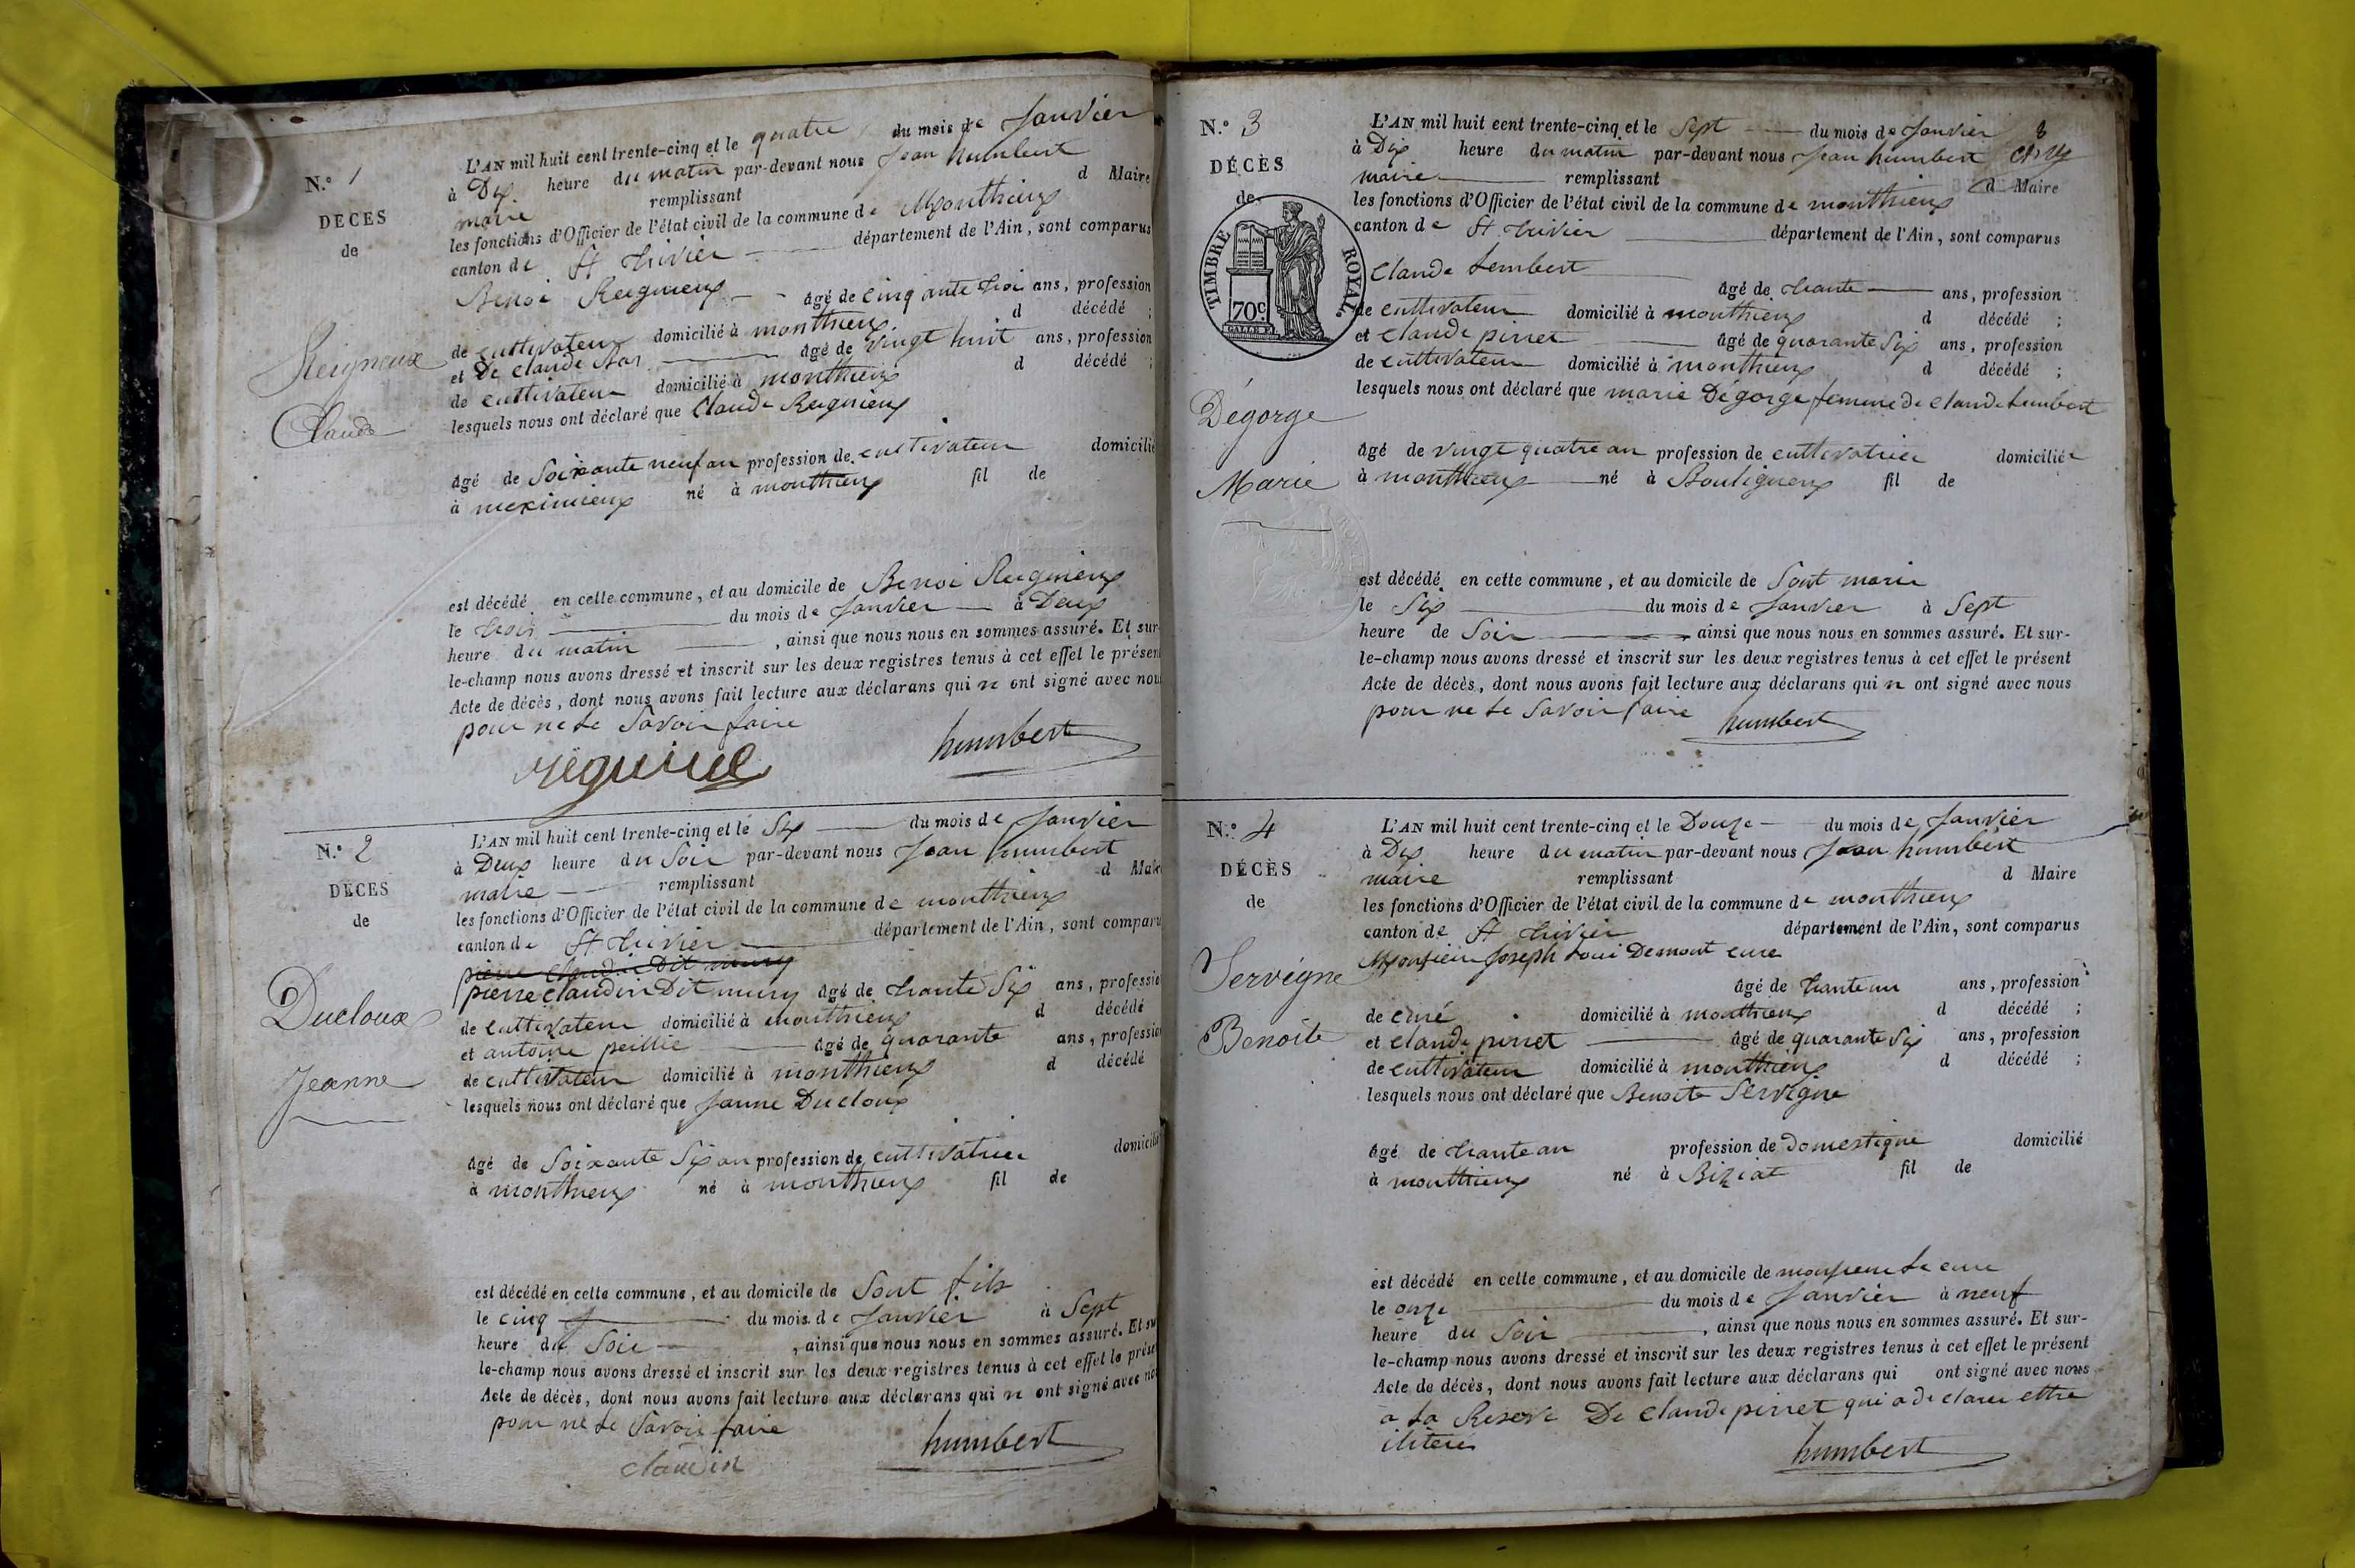 N.º 1
DÉCÈS
de
Reigneux
Claude
L'AN mil huit cent trente-cinq et le quatre du mois de Janvier
à Dix heure du matin par-devant nous Jean humbert
maire remplissant d Maire
les fonctions d'Officier de l'état civil de la commune de Monthieux
canton de St trivier département de l'Ain, sont comparus
Benoi Reignieux âgé de cinq ante trois ans, profession
de cultivateur domicilié à monthieux d décédé ;
et De Claude âgé de vingt huit ans, profession
de cultivateur domicilié à monthieux d décédé ;
lesquels nous ont déclaré que Claude Reignieux
âgé de Soixante neuf an profession de cultivateur domicilié
à meximieux né à monthieux fil de
est décédé en cette commune, et au domicile de Benoi Reignieux
le trois du mois de Janvier à Deux
heure du matin , ainsi que nous nous en sommes assuré. Et sur-
le-champ nous avons dressé et inscrit sur les deux registres tenus à cet effet le présen
Acte de décès, dont nous avons fait lecture aux déclarans qui n ont signé avec nou
pour ne le Savoir faire
humbert
N.º 2
DÉCÈS
de
Ducloux
Jeanne
L'AN mil huit cent trente-cinq et le Six du mois de Janvier
à Deux heure du Soir par-devant nous Jean humbert
maire remplissant d Mair
les fonctions d'Officier de l'état civil de la commune de monthieux
canton de St trivier département de l'Ain, sont comparu
pierre claudin Dit mury
pierre claudin Dit mury âgé de trante Six ans, professio
de cultivateur domicilié à monthieux d décédé
et antoine peillie âgé de quarante ans, profession
de cultivateur domicilié à monthieux d décédé
lesquels nous ont déclaré que Janne Ducloux
âgé de Soixante Six an profession de cultivatrice domicilié
à monthieux né à monthieux fil de
est décédé en cette commune, et au domicile de Sont fils
le cinq du mois de Janvier à Sept
heure du Soir , ainsi que nous nous en sommes assuré. Et su
le-champ nous avons dressé et inscrit sur les deux registres tenus à cet effet le prése
Acte de décès, dont nous avons fait lecture aux déclarans qui n ont signé avec no
pour ne le Savoir faire
claudin humbert
N.º 3
DÉCÈS
de
TIMBRE ROYAL.
70c.
Dégorge
Marie
L'AN mil huit cent trente-cinq et le Sept du mois de Janvier 3
à Dix heure du matin par-devant nous Jean humbert
maire remplissant d Maire
les fonctions d'Officier de l'état civil de la commune de monthieux
canton de St trivier département de l'Ain, sont comparus
Claude Lembert âgé de trante ans, profession
de cultivateur domicilié à monthieux d décédé ;
et Claude pirret âgé de quarante Six ans, profession
de cultivateur domicilié à monthieux d décédé ;
lesquels nous ont déclaré que marie Dégorge femme de claude Lembert
âgé de vingt quatre an profession de cultivatrice domiciliée
à monthieux né à Bouligneux fil de
est décédé en cette commune, et au domicile de Sont marie
le Six du mois de Janvier à Sept
heure de Soir ainsi que nous nous en sommes assuré. Et sur-
le-champ nous avons dressé et inscrit sur les deux registres tenus à cet effet le présent
Acte de décès, dont nous avons fait lecture aux déclarans qui n ont signé avec nous
pour ne le Savoir faire humbert
N.º 4
DÉCÈS
de
Servigne
Benoite
L'AN mil huit cent trente-cinq et le Douze du mois de Janvier
à Dix heure du matin par-devant nous Jean humbert
maire remplissant d Maire
les fonctions d'Officier de l'état civil de la commune de monthieux
canton de St trivier département de l'Ain, sont comparus
Monsieur Joseph Loui Demont cure
âgé de trante un ans, profession
de curé domicilié à monthieux d décédé ;
et claude pirret âgé de quarante Six ans, profession
de cultivateur domicilié à monthieux d décédé ;
lesquels nous ont déclaré que Benoite Servigne
âgé de trante an profession de Domestique domicilié
à monthieux né à Biziat fil de
est décédé en cette commune, et au domicile de monsieur Le cure
le onze du mois de Janvier à neuf
heure du Soir , ainsi que nous nous en sommes assuré. Et sur-
le-champ nous avons dressé et inscrit sur les deux registres tenus à cet effet le présent
Acte de décès, dont nous avons fait lecture aux déclarans qui ont signé avec nous
a La Reserve De Claude pirret qui a declarer ettre
iliteré
humbert